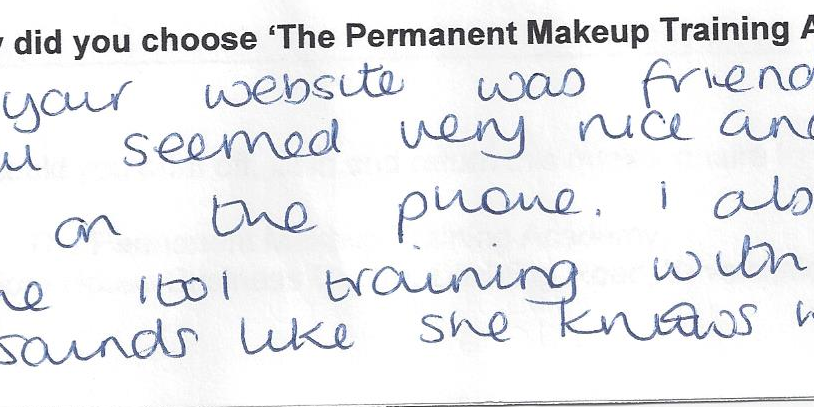 did you choose ‘The Permanent Makeup Training A
your website was friend
seemed very nice and
on the phone. i also
1to1 training with
sounds like she knows